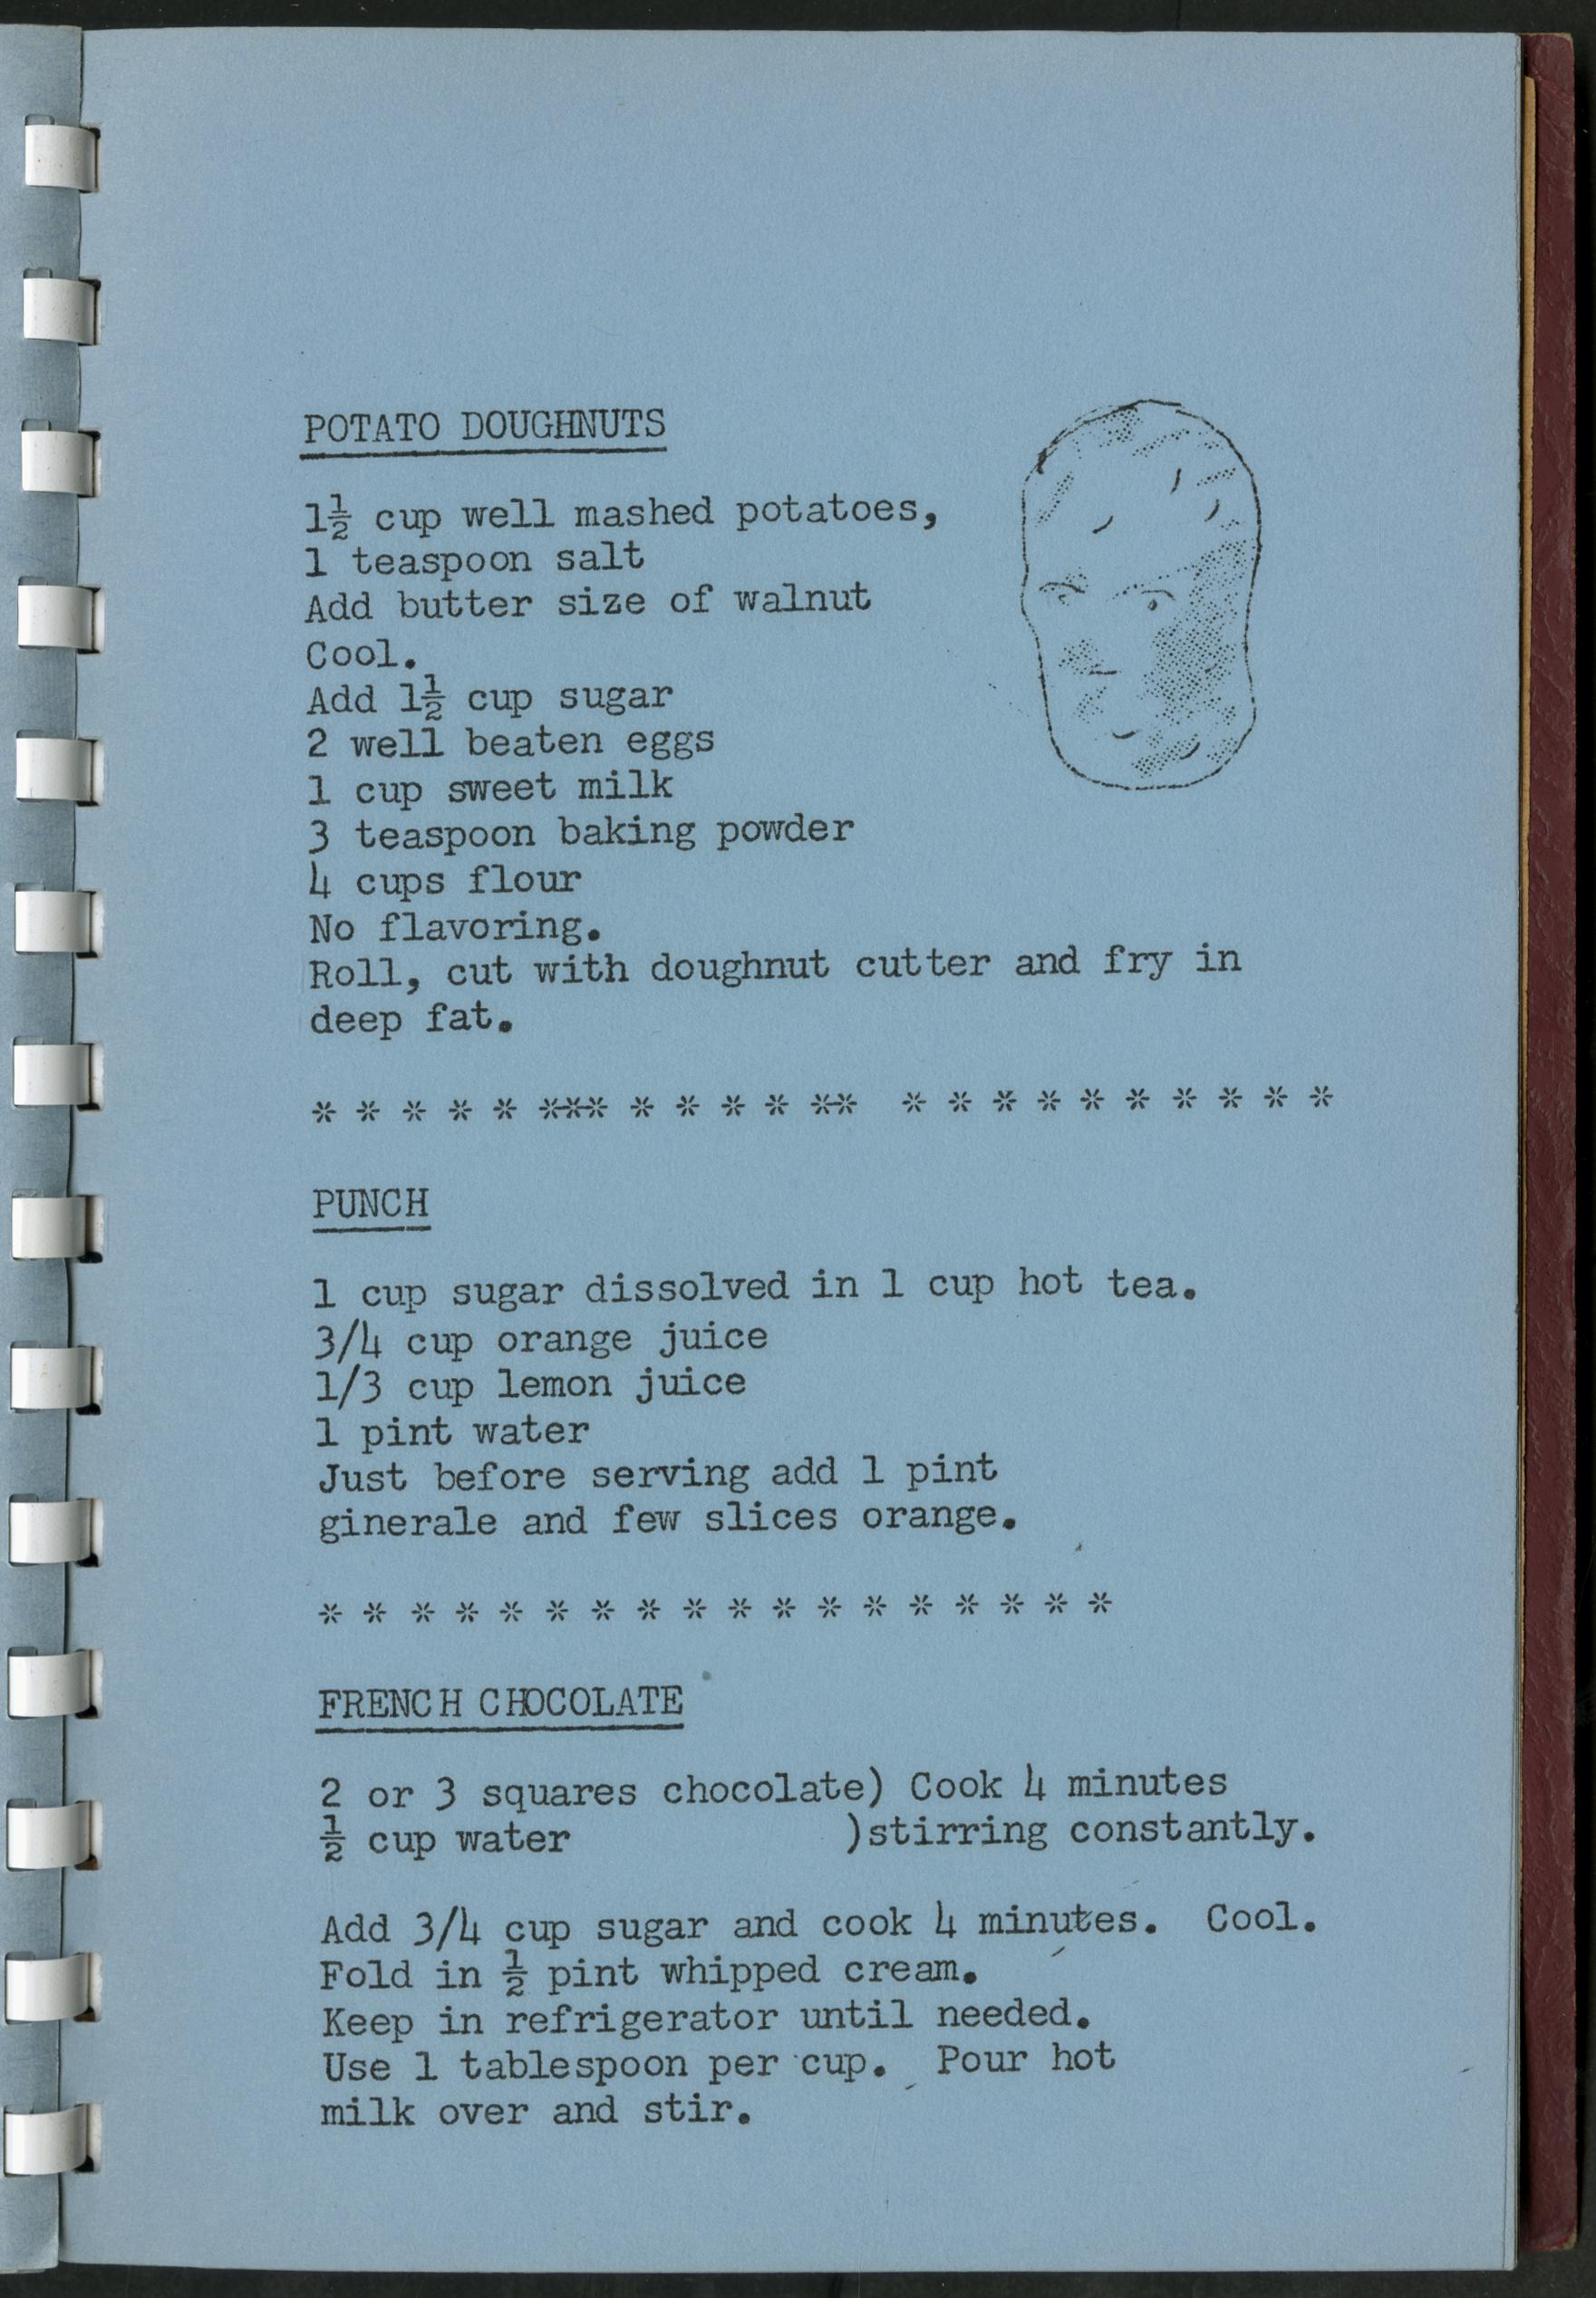 POTATO DOUGHNUTS
1½ cup well mashed potatoes,
1 teaspoon salt
Add butter size of walnut
Cool.
Add 1½ cup sugar
2 well beaten eggs
1 cup sweet milk
3 teaspoon baking powder
4 cups flour
No flavoring.
Roll, cut with doughnut cutter and fry in
deep fat.
* * * * * *** * * * * ** * * * * * * * * * *
PUNCH
1 cup sugar dissolved in 1 cup hot tea.
3/4 cup orange juice
1/3 cup lemon juice
1 pint water
Just before serving add 1 pint
ginerale and few slices orange.
* * * * * * * * * * * * * * * * * *
FRENCH CHOCOLATE
2 or 3 squares chocolate) Cook 4 minutes
½ cup water )stirring constantly.
Add 3/4 cup sugar and cook 4 minutes. Cool.
Fold in ½ pint whipped cream.
Keep in refrigerator until needed.
Use 1 tablespoon per cup. Pour hot
milk over and stir.